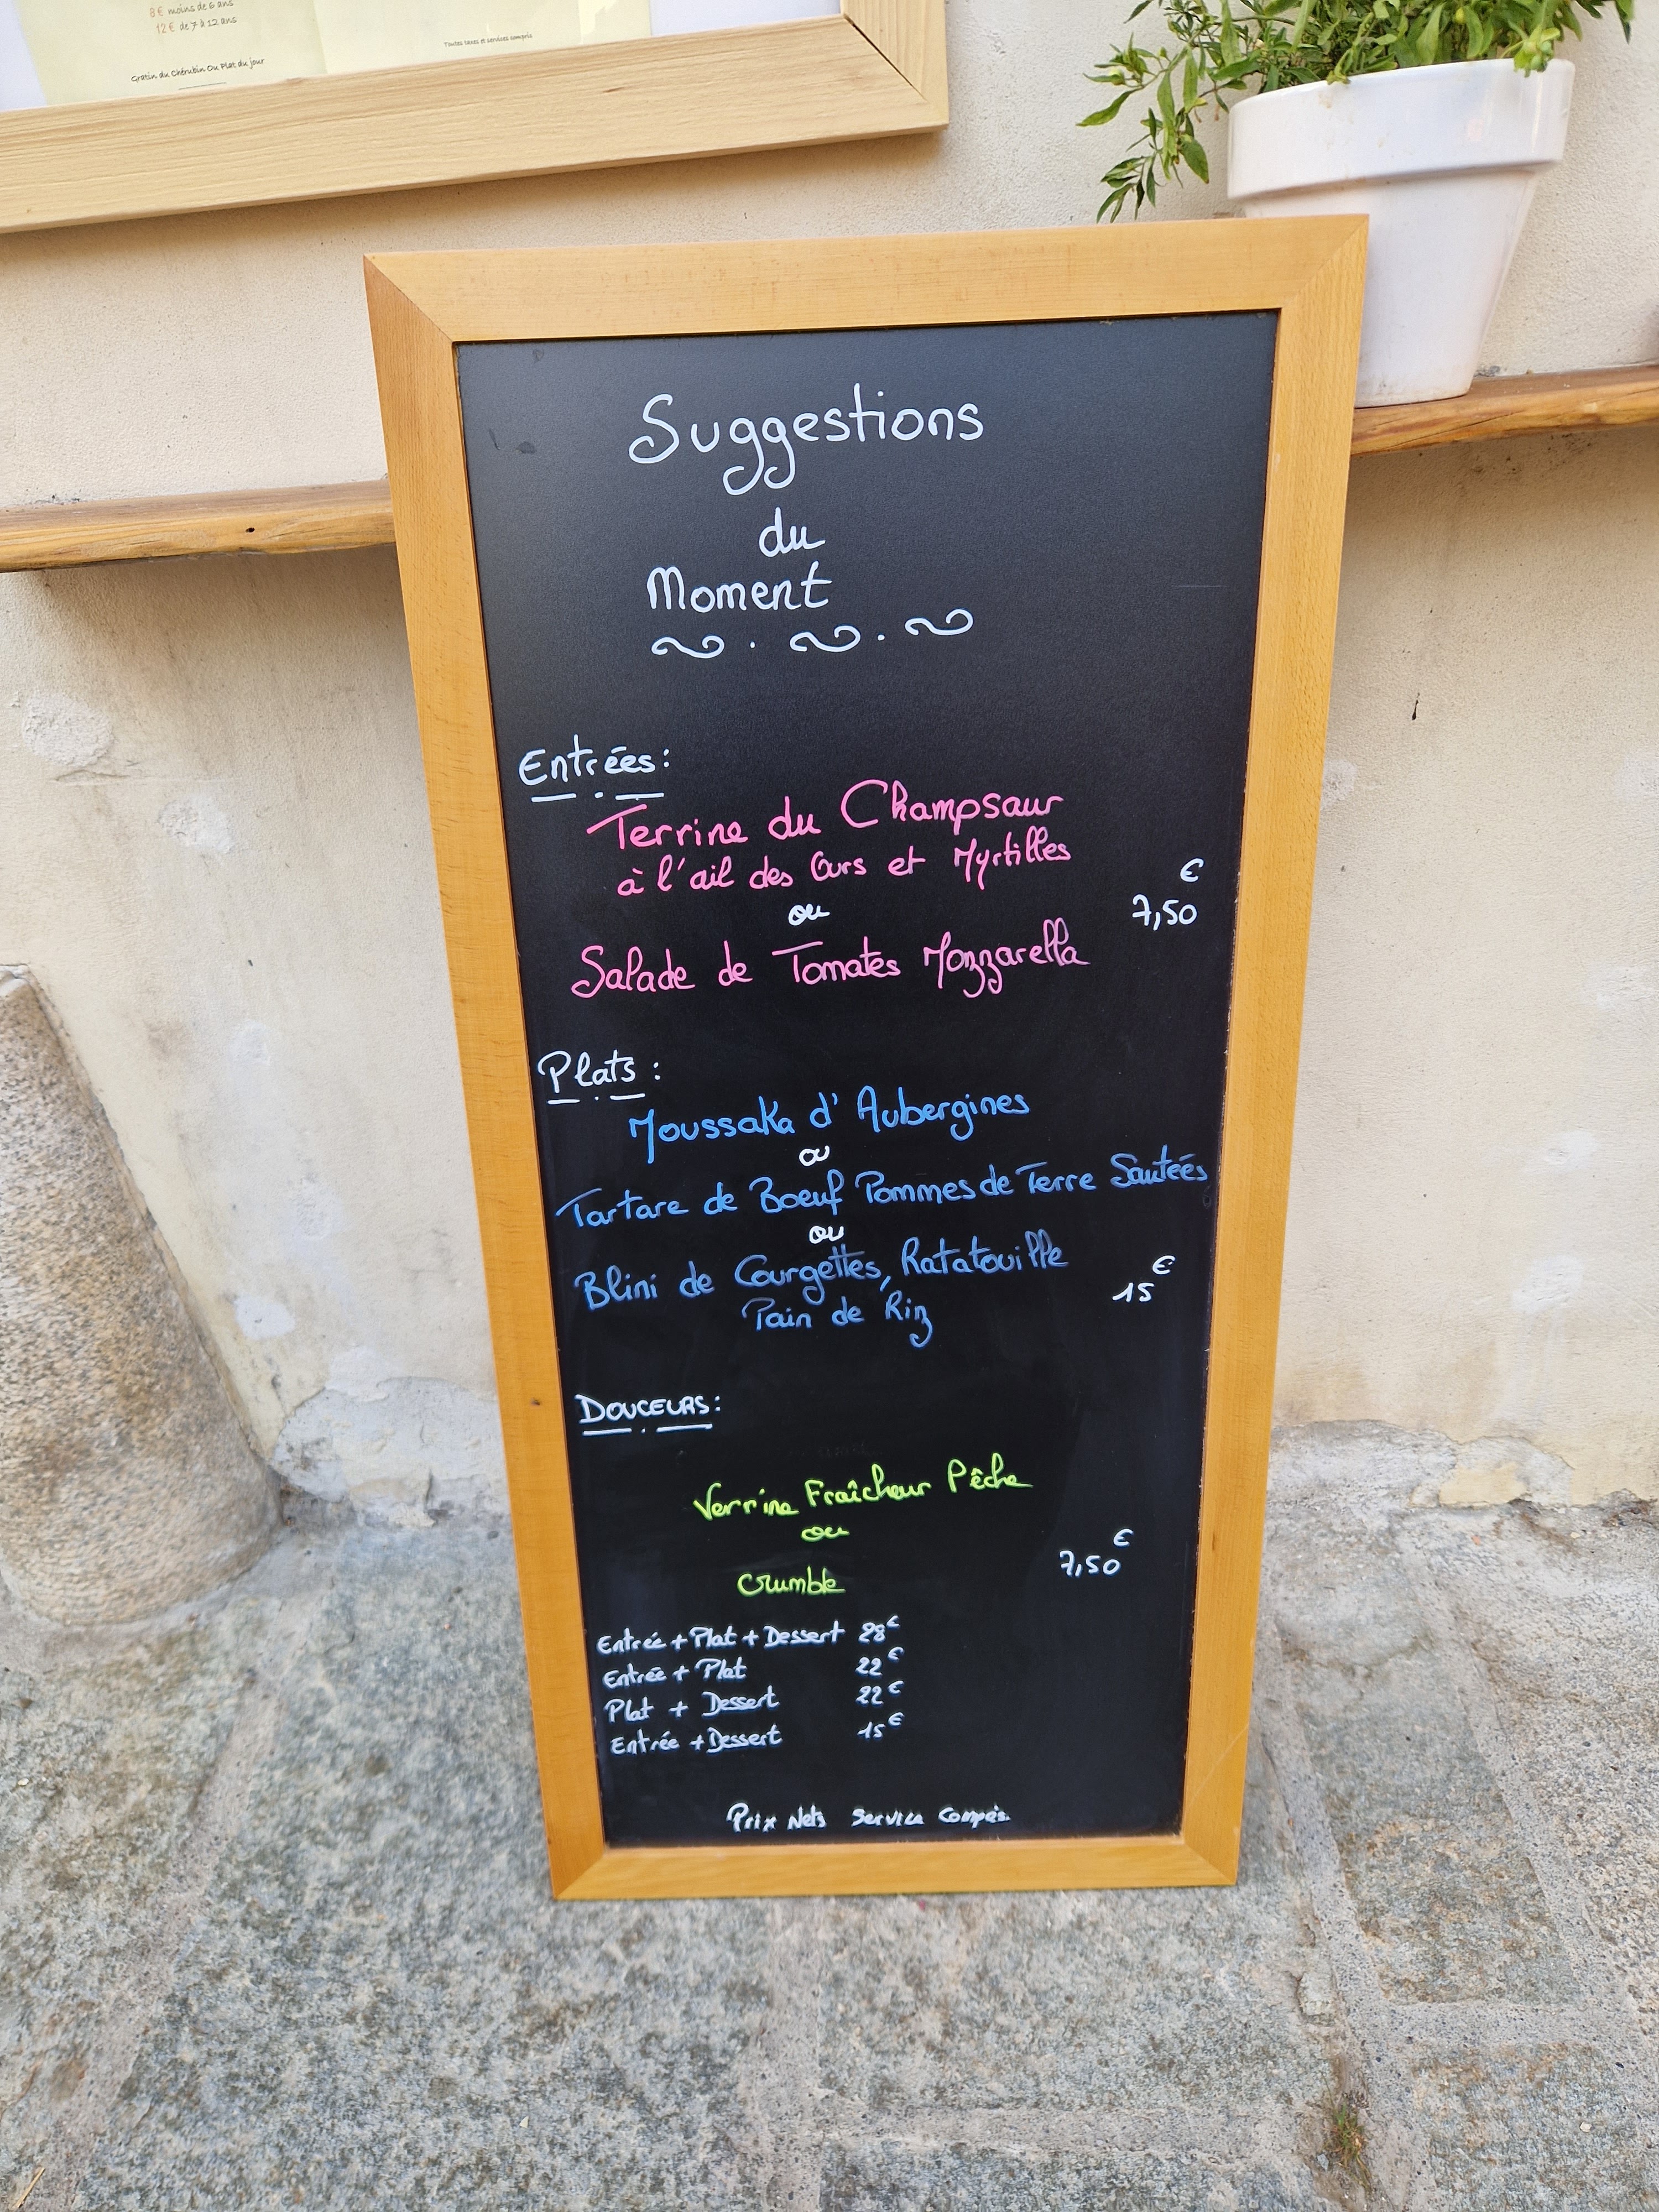 8 € moins de 6 ans
12 € de 7 à 12 ans
Toutes taxes et services compris
Gratin du Chérubin Ou Plat du jour
Suggestions
du
Moment
Entrées :
Terrine du Champsaur
à l'ail des Ours et Myrtilles
ou
€
7,50
Salade de Tomates Mozzarella
Plats :
Moussaka d'Aubergines
ou
Tartare de Boeuf Pommes de Terre Sautées
ou
Blini de Courgettes, Ratatouille
Pain de Riz
15 €
DOUCEURS :
Verrine Fraîcheur Pêche
ou
Crumble
7,50 €
Entrée + Plat + Dessert 28 €
Entrée + Plat 22 €
Plat + Dessert 22 €
Entrée + Dessert 15 €
Prix Nets Service Compris.